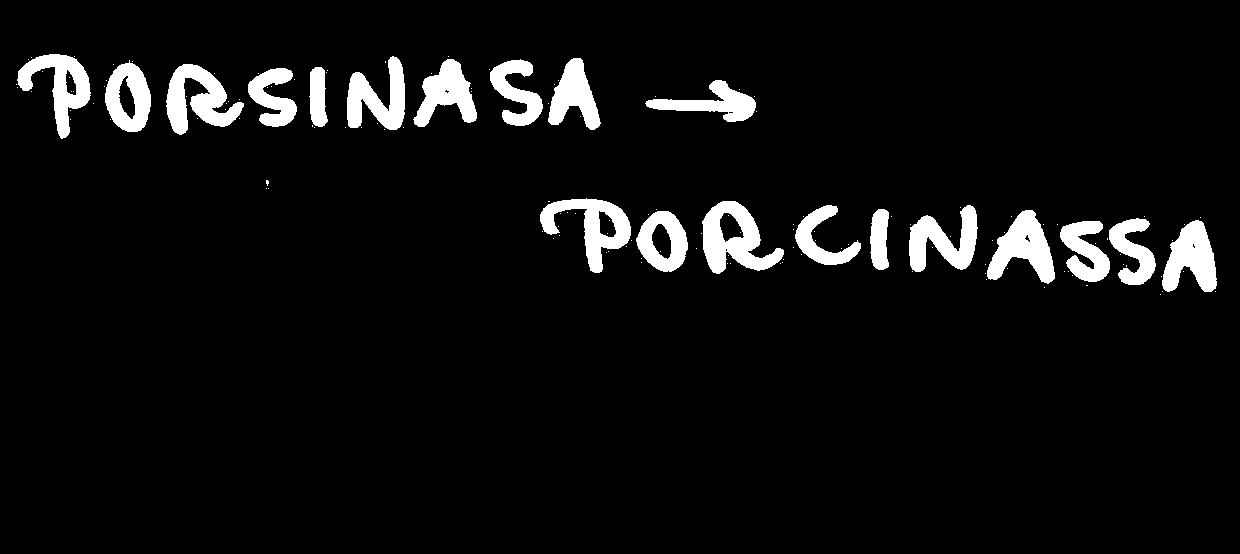 PORSINASA →
PORCINASSA